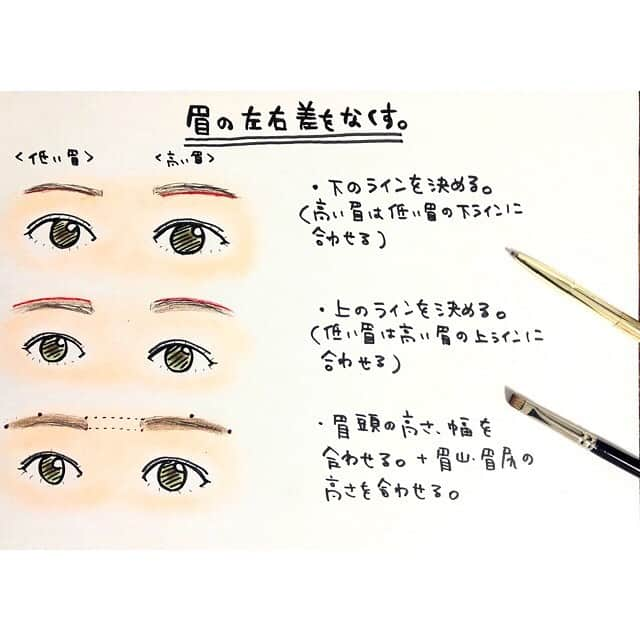 眉の左右差をなくす。
〈低い眉〉 〈高い眉〉
・下のラインを決める。
(高い眉は低い眉の下ラインに
合わせる)
・上のラインを決める。
(低い眉は高い眉の上ラインに
合わせる)
・眉頭の高さ、幅を
合わせる。+眉山・眉尻の
高さを合わせる。